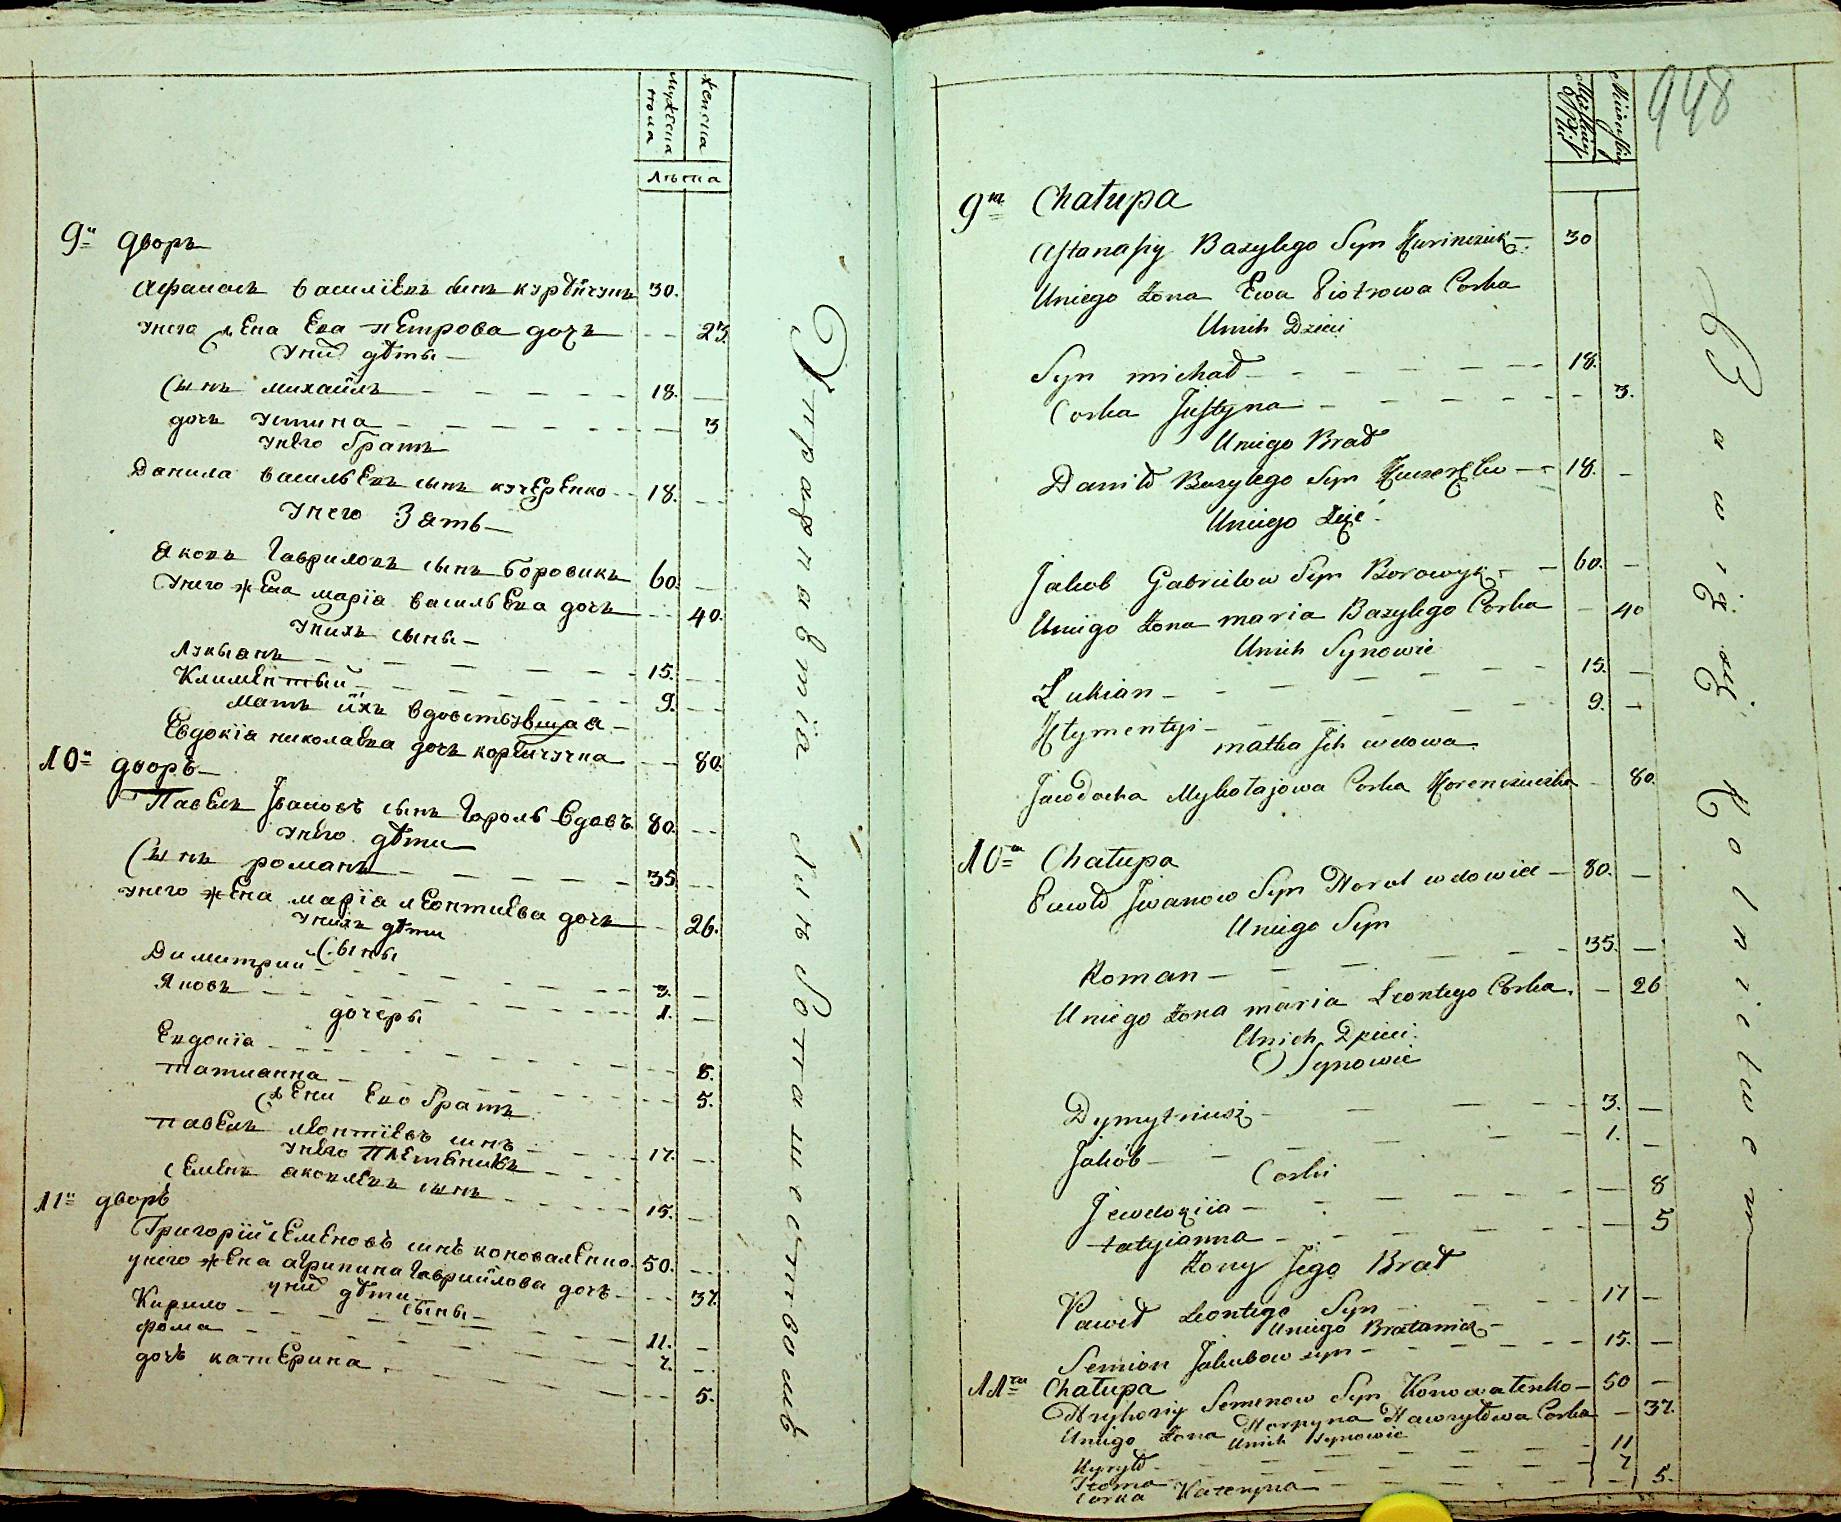 мужеска пола
женска
лѣта
9й дворъ
Афанасъ василіевъ сынъ курѣнчукъ 30.
унего жена Ева петрова дочъ 23.
уних дѣты
Сынъ михайлъ 18.
дочъ устина 3
унего братъ
Данила василъевъ сынъ кучеренко 18.
унего Зятъ
Яковъ Гавриловъ сынъ боровикъ 60.
унего жена марія василъева дочъ 40.
унихъ сыны
Лукъянъ 15.
Климентъй 9.
матъ ихъ вдовствующая
Евдокія николаева дочъ 80.
10й дворъ
Павелъ Івановъ сынъ Горолъ вдовъ 80.
унего дѣти
Сынъ романъ 35.
унего жена марія леонтиева дочъ 26.
унихъ дѣти
Сыны
Димитрий 3.
Яковъ 1.
дочеры
Евдокіа 8.
татианна 5.
жены Ево братъ
павелъ леонтіевъ сынъ 17.
унего племѣникъ
семенъ яковлевъ сынъ 15.
11й дворъ
Григорій семеновъ синъ коноваленко 50.
унего жена агрипина гавриилова дочъ 37.
уних дѣти
сыны
Кирило 11.
фома 7.
дочъ катерина 5.
948
9ta Chałupa
Aftanasiy Bazylego Syn 30
Uniego Żona Ewa Piotrowa Corka
Unich Dzieci
Syn michał 18.
Corka Justyna 3.
Uniego Brat
Daniło Bazylego Syn 18.
Uniego Zięć
Jakob Gabrielow Syn Borowyk 60.
Uniego Żona maria Bazylego Corka 40
Unich Synowie
Lukian 15.
Kłymentyi 9.
matka Ich wdowa
Jawdocha Mykołajowa Corka 80.
10ta Chałupa
Paweł Iwanow Syn Horol wdowiec 80.
Uniego Syn
Roman 35.
Uniego Żona maria Leontego Corka 26
Unich Dzieci
Synowie
Dymytriusz 3.
Jakób 1.
Corki
Jewdokiia 8
tatyianna 5
Żony Jego Brat
Paweł Leontego Syn 17
Uniego Bratanicz
Semion Jakubow syn 15.
11ta Chałupa
Hryhoriy Semenow Syn Konowałenko 50
Uniego Żona Horpyna Hawryłowa Corka 37.
Unich Synowie
Kyryło 11
Homa 7
Corka Kateryna 5.